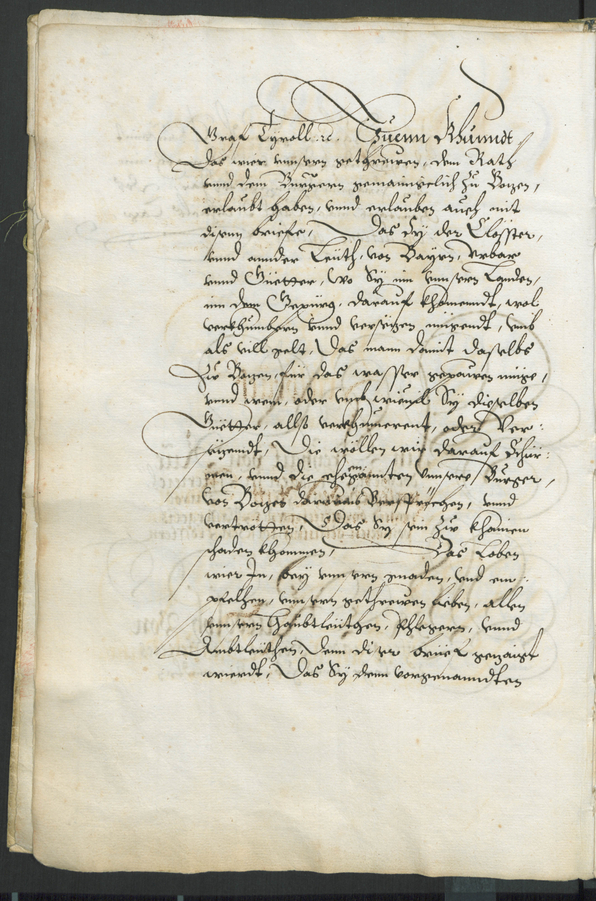 Graf Tyroll. rc. Thuenn Khunndt
Das wier unnsern gethrewen, dem Rath
unnd dem Burgern gemainigclich zu Bozen,
erlaubt haben, unnd erlauben auch mit
disem brieffe, Das Sy der Closster,
unnd annder Leüth, von Bayrn, Urbar
unnd Güetter, wo Sy im unnsern Lannden,
im dem Gepürg, darauf khomenndt, wol
verkhumbern unnd versezen mügendt, umb
als vill gelt, Das mann damit daselbs
Zu Bozen, für das wasser gepawen müge,
unnd wem, oder umb wieuil Sy dieselben
Güetter, allso verkhumerent, oder Ver:
sezendt, Die wöllen wir darauf Schir:
men, unnd die ehegenannten unnsere Burger,
von Bozen Versprechen, unnd
vertretten, Das Sy sein Zu khainem
schaden khommen, Das Loben
wier In, bey unnsern gnaden, und em:
pfelhen, unnsern gethrewen lieben, allen
unnsern Haubtleüthen, Phlegern, unnd
Ambtleüthen, Denn diser brief gezaigt
wierdt, Das Sy denn vorgenanndten